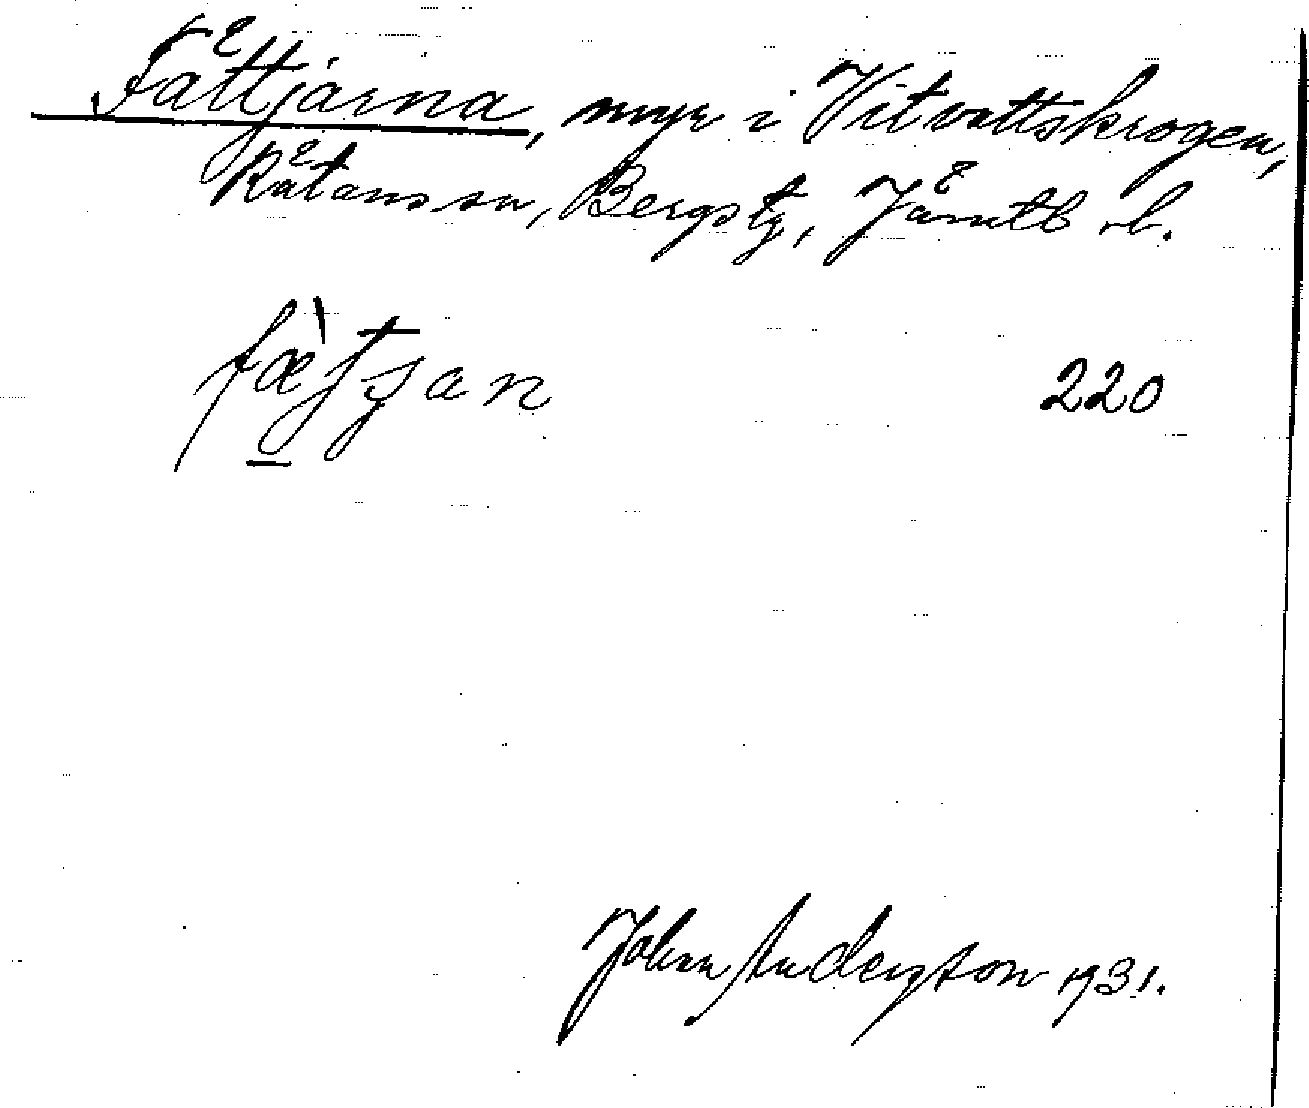 Fättjärna, myr i Vitvattskrogen,
Rätans sn, Bergs tg, Jämtl. l.
220
Johan Anderzton 1931.